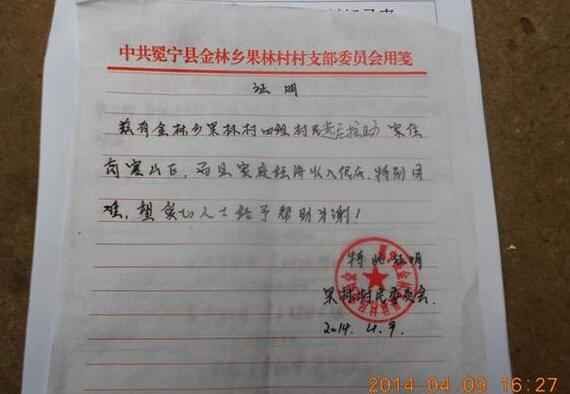 中共冕宁县金林乡果林村村支部委员会用笺
证明
兹有金林乡果林村四组村民 家住
高寒山区，而且家庭经济收入很底，特别困
难，望爱心人士给予帮助为谢！
特此证明
果林村民委员会.
2014.4.9.
2014-04-09 16:27